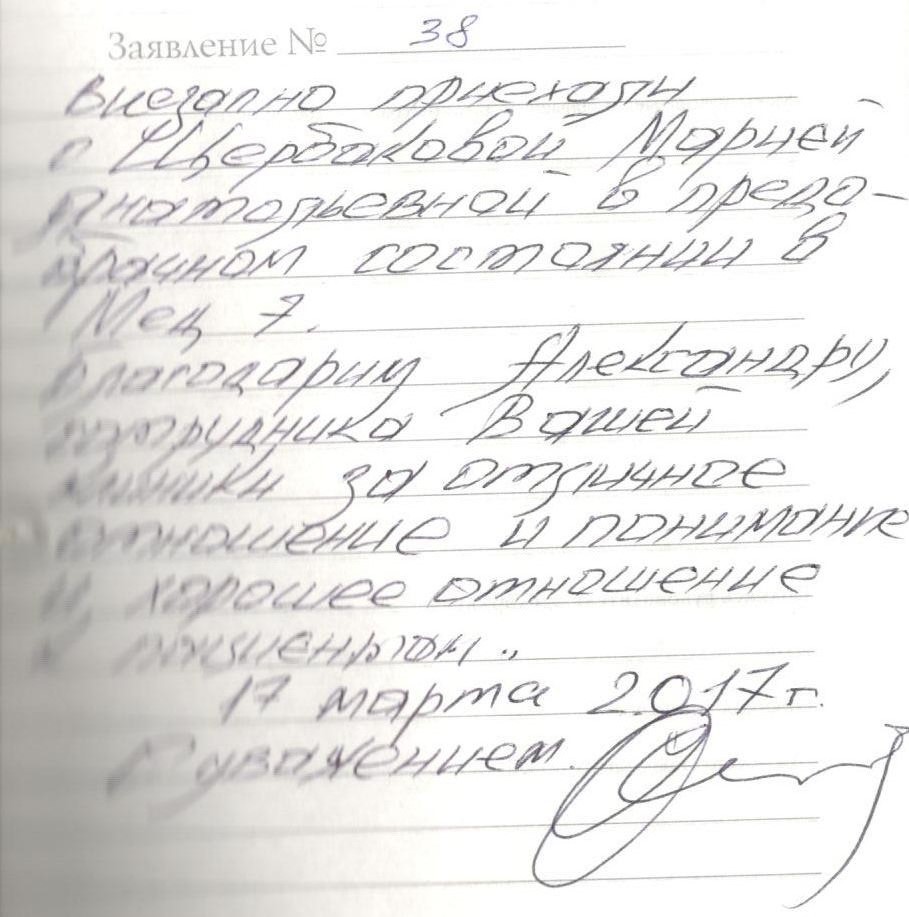 Заявление № 38
Внезапно приехали
с Щербаковой Марией
Анатольевной в предо-
брачном состоянии в
Мед 7.
Благодарим Александру,
сотрудника Вашей
клиники за отличное
отношение и понимание
и хорошее отношение
к пациентам.
17 марта 2017 г.
С уважением.